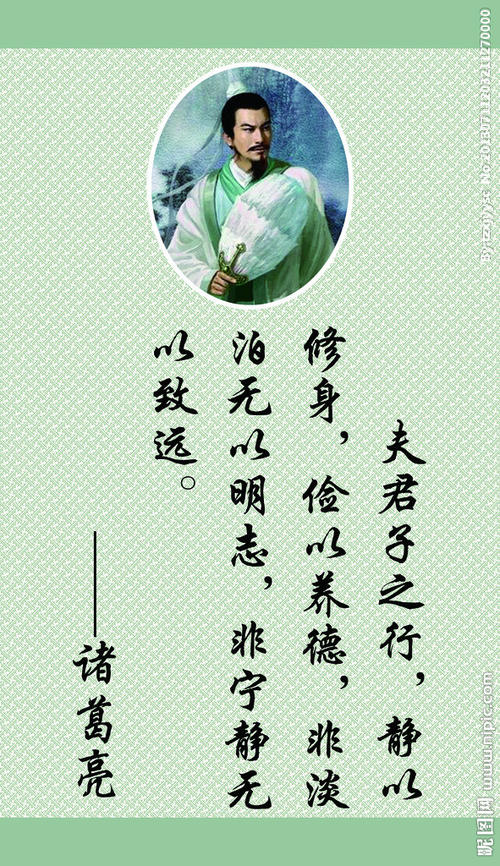 夫君子之行，静以
修身，俭以养德，非淡
泊无以明志，非宁静无
以致远。
——诸葛亮
昵图网 www.nipic.com